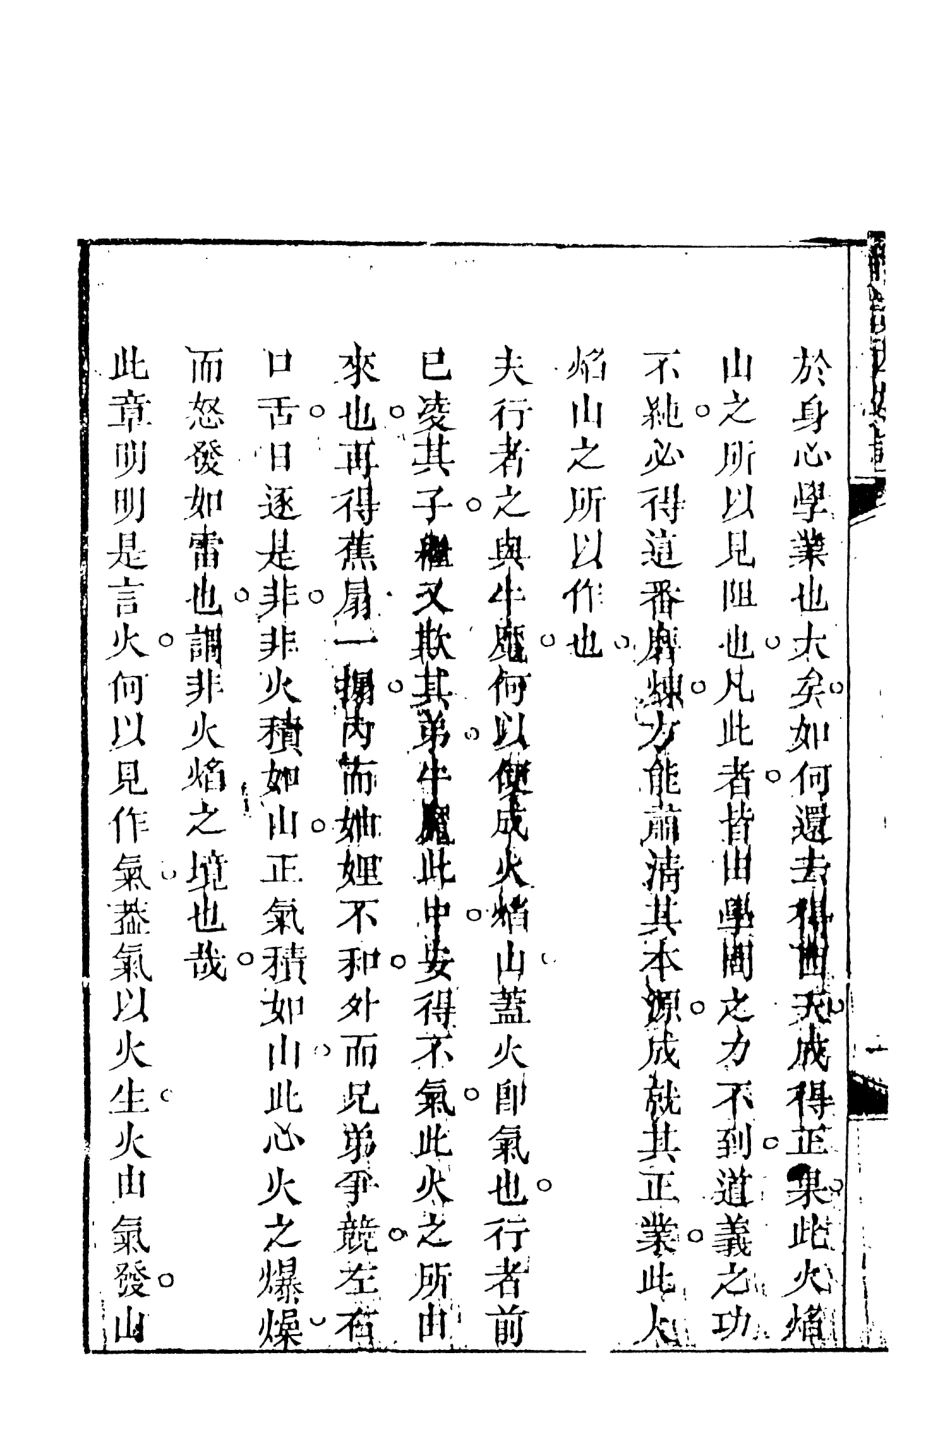 於身心學業也大矣如何還去得西天成得正果此火焰
山之所以見阻也凡此者皆由學問之力不到道義之功
不純必得這番磨煉方能肅清其本源成就其正業此火
焰山之所以作也
夫行者之與牛魔何以便成火焰山蓋火卽氣也行者前
已凌其子繼又欺其弟牛魔此中安得不氣此火之所由
來也再得蕉扇一搧內而妯娌不和外而兄弟爭競左右
口舌日逐是非非火積如山正氣積如山此心火之爆燥
而怒發如雷也謂非火焰之境也哉
此章明明是言火何以見作氣葢氣以火生火由氣發山